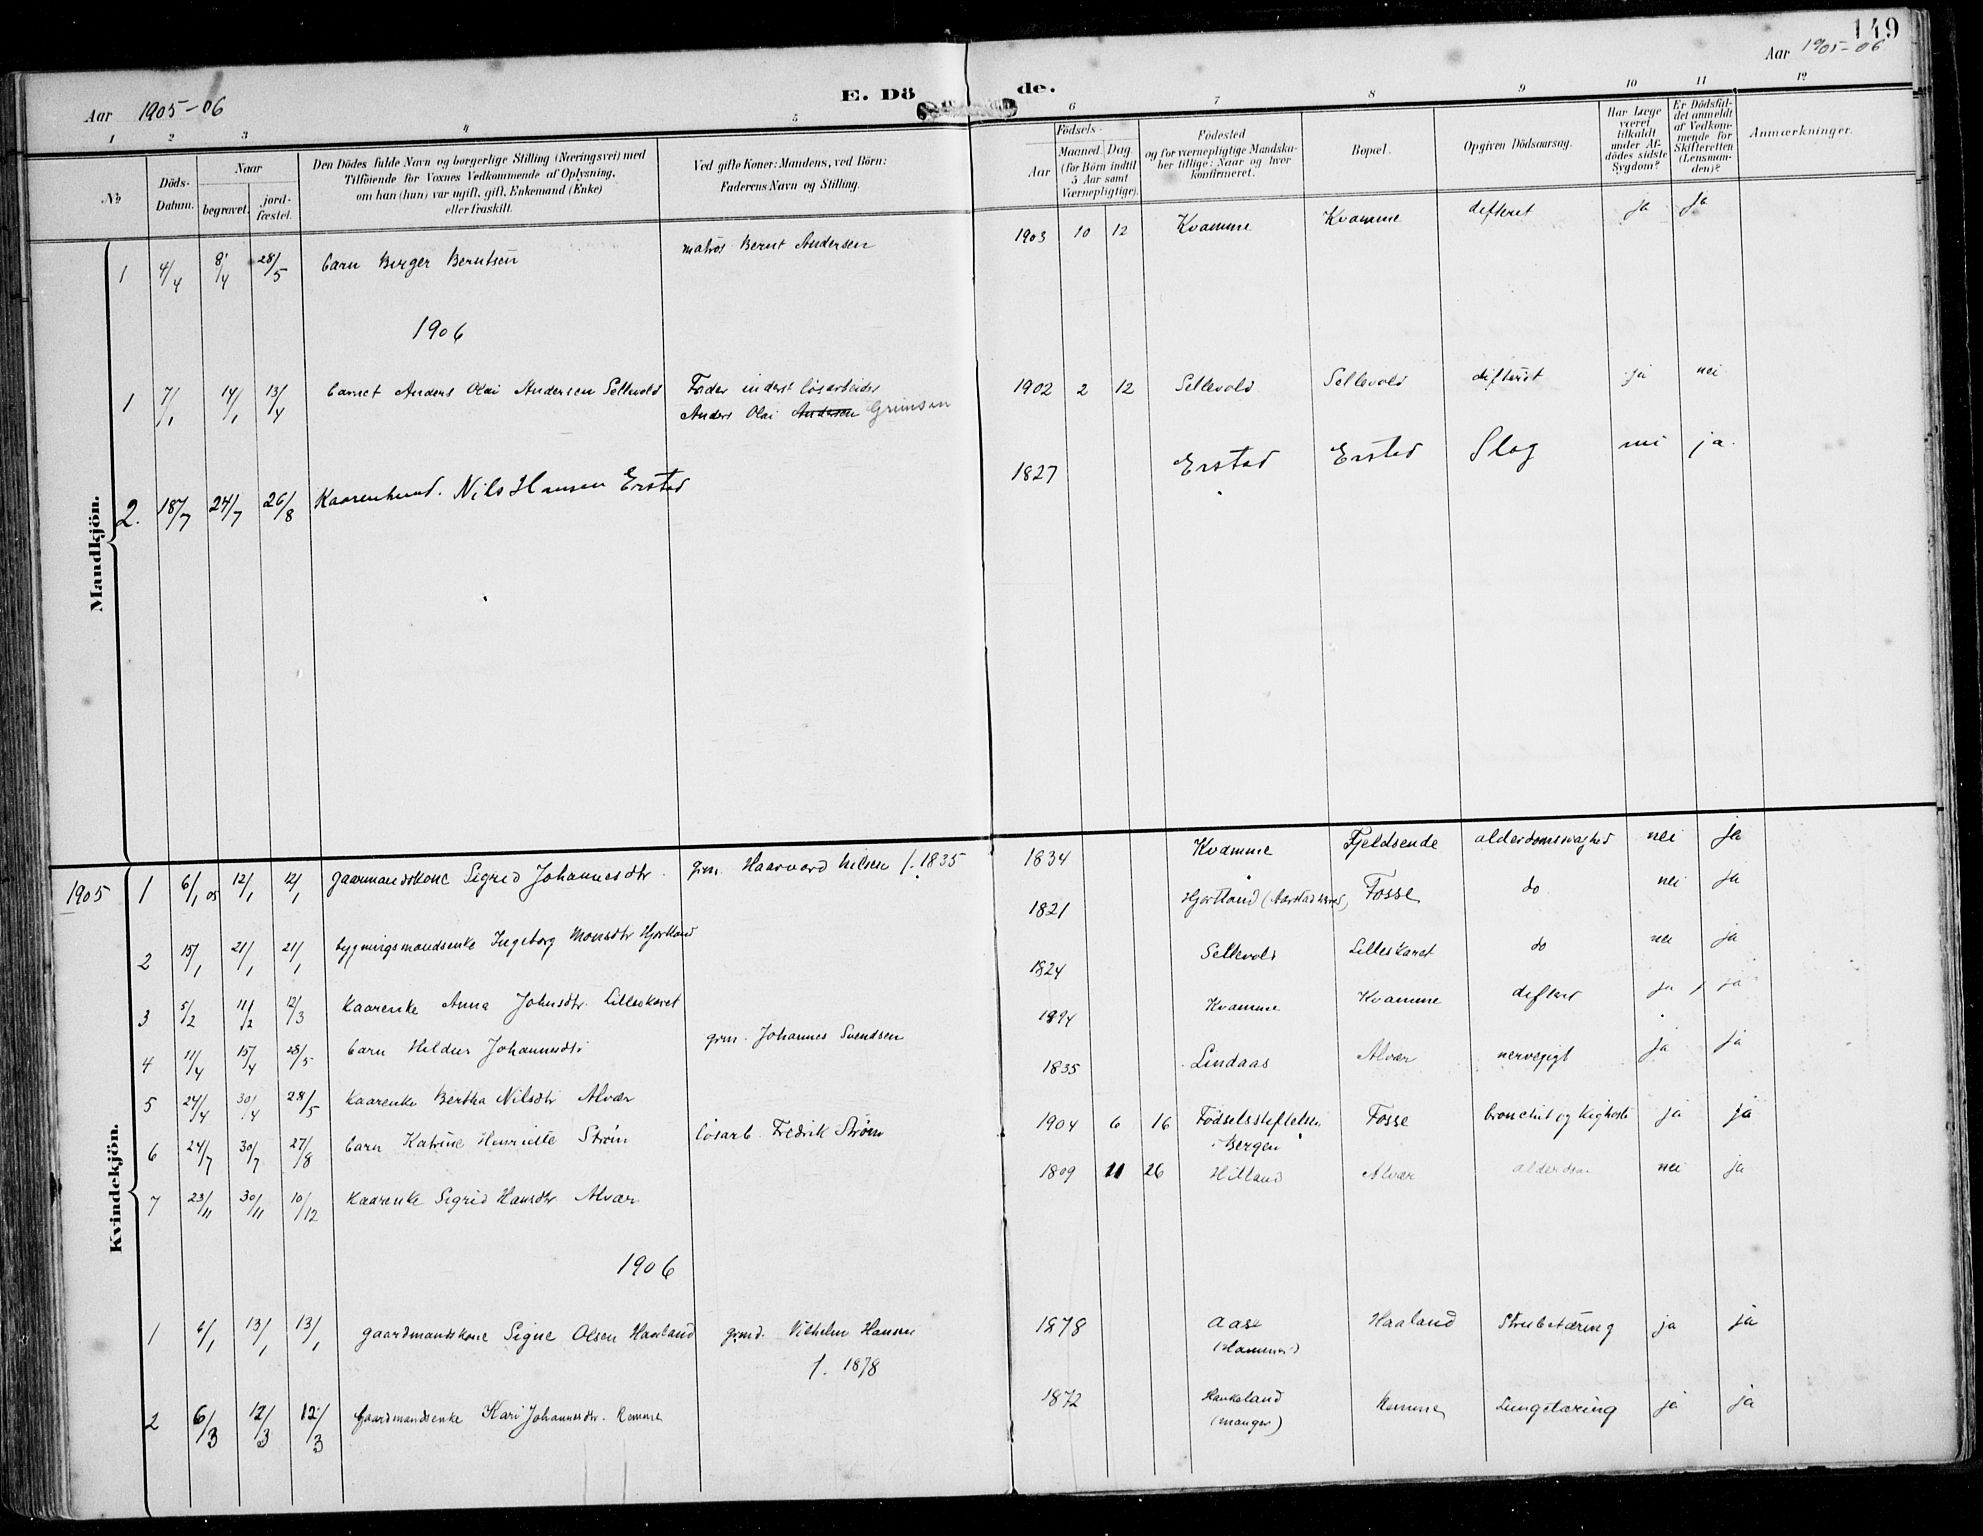 149
Aar 1905-06
E. Dö de.
Aar 1905-06
1 2 3 4 5 6 7 8 9 10 11 12
No
Döds-Datum.
Naar
begravet.
jord-fæstet.
Den Dödes fulde Navn og borgerlige Stilling (Næringsvei) med
Tilföiende for Voxnes Vedkommende af Oplysning,
om han (hun) var ugift, gift, Enkemand (Enke)
eller fraskilt.
Ved gifte Koner: Mandens, ved Börn:
Faderens Navn og Stilling.
Födsels-
Aar
Maaned. Dag
(for Börn indtil
5 Aar samt
Værnepligtige).
Födested
og for værnepligtige Mandska-
ber tillige: Naar og hvor
konfirmeret.
Bopæl.
Opgiven Dödsaarsag.
Har Læge
været
tilkaldt
under Af-
dödes sidste
Sygdom?
Er Dödsfal-
det anmeldt
af Vedkom-
mende for
Skifteretten
(Lensman-
den)?
Anmærkninger.
Mandkjön.
1 4/4 8/4 28/5 barn Birger Berntsen matros Bernt Andersen 1903 10 12 Kvamme Kvamme difterit ja ja
1906
1 7/1 14/1 13/4 barnet Anders Olai Andersen Sellevold Fader inderst løsarbeider 1902 2 12 Sellevold Sellevold difterit ja nei
Anders Olai Andersen Grimsen
2. 18/7 24/7 26/8 Kaarenkemd. Nils Hansen Erstad 1827 Erstad Erstad Slag nei ja.
Kvindekjön.
1905 1 6/1 05 12/1 12/1 gaarmandskone Sigrid Johannesdtr. grm. Haarvard Nilsen f. 1835 1834 Kvamme Fjeldsende alderdomssvaghed nei ja
2 15/1 21/1 21/1 bygningsmandsenke Ingeborg Monsdtr Hjortland 1821 Hjortland Fosse do nei ja
3 5/2 11/2 12/3 Kaarenke Anna Johnsdtr. Lilleskaret 1824 Sellevold Lilleskaret do nei ja
4 11/4 15/4 28/5 barn Johannesdtr grm. Johannes Svendsen 1894 Kvamme Kvamme difterit ja ja
5 24/4 30/4 28/5 Kaarenke Bertha Nilsdtr Alvær 1835 Lindaas Alvær nervegigt ja ja
6 24/7 30/7 27/8 barn Katrine Henriette Strøm løsarb. Fredrik Strøm 1904 6 16 Fødselsstiftelsen Fosse bronchit og kighoste ja ja
i Bergen
7 23/11 30/11 10/12 Kaarenke Sigrid Hansdtr Alvær 1809 11 26 Hilland Alvær alderdom nei ja
1906
1 6/1 13/1 13/1 gaardmandskone Signe Olsen Haaland grmd. Vilhelm Hansen 1878 Aase Haaland Strubetæring ja ja
f. 1878 (Hammer)
2 6/3 12/3 12/3 Gaardmandsenke Kari Johannesdtr. Romme 1872 Haukeland Romme Lungetæring ja ja
(Manger)